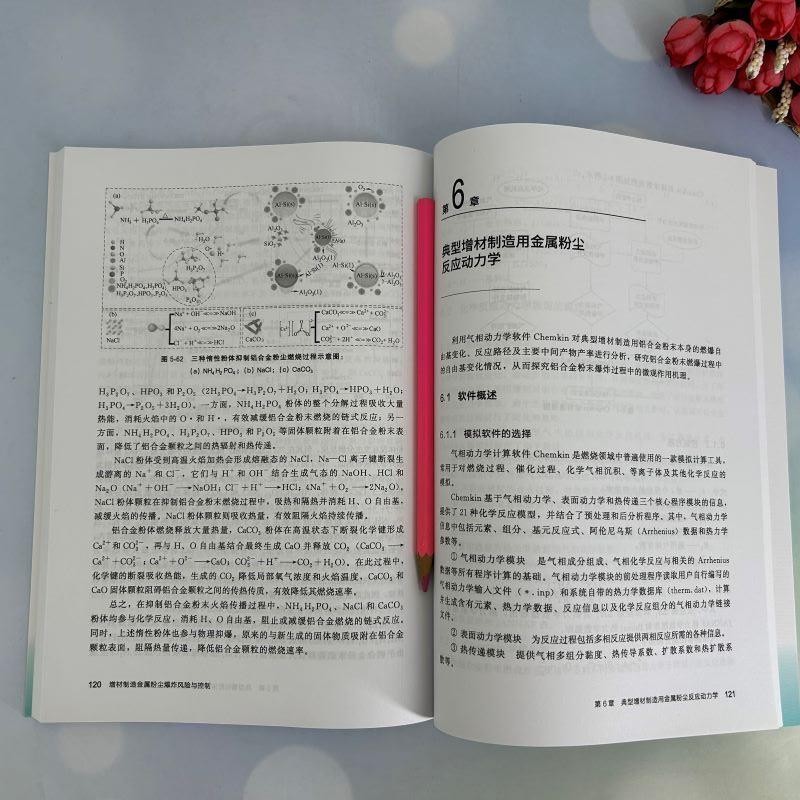 (a)
NH₃ + H₃PO₄ NH₄H₂PO₄
H
N
O
Al
Si
P
O₂
NH₄H₂PO₄, H₃PO₄
H₄P₂O₇, HPO₃, P₂O₅
H₂O
H₄P₂O₇
HPO₃
P₂O₅
Al-Si(s)
Al-Si(s)
O₂
Al₂O₃
SiO₂
Al₂O₃
Al₂O₃(l)
Al-Si(s)
Al-Si(l)
Al-Si(l)
Al₂O₃(l)
(b)
NaCl
Na⁺ + OH⁻<=>NaOH
4Na⁺ + O₂<=>2Na₂O
Cl⁻ + H⁺<=>HCl
(c)
CaCO₃
CaCO₃<=>Ca²⁺ + CO₃²⁻
Ca²⁺ + O²⁻<=>CaO
CO₃²⁻ + 2H⁺<=>CO₂+ H₂O
图 5-62 三种惰性粉体抑制铝合金粉尘燃烧过程示意图:
(a) NH₄H₂PO₄; (b) NaCl; (c) CaCO₃
H₄P₂O₇、HPO₃ 和 P₂O₅ (2H₃PO₄→H₄P₂O₇+H₂O; H₃PO₄→HPO₃+H₂O;
H₃PO₄→P₂O₅+3H₂O)。一方面,NH₄H₂PO₄ 粉体的整个分解过程吸收大量
热能,消耗火焰中的 O·和 H·,有效减缓铝合金粉末燃烧的链式反应;另一
方面,NH₄H₂PO₄、H₄P₂O₇、HPO₃ 和 P₂O₅ 等固体颗粒附着在铝合金粉末表
面,降低了铝合金颗粒之间的热辐射和热传递。
NaCl 粉体受到高温火焰加热会形成熔融态的 NaCl,Na—Cl 离子键断裂生
成游离的 Na⁺ 和 Cl⁻,它们与 H⁺ 和 OH⁻ 结合生成气态的 NaOH、HCl 和
Na₂O (Na⁺+OH⁻→NaOH; Cl⁻+H⁺→HCl; 4Na⁺+O₂→2Na₂O)。
NaCl 粉体颗粒在抑制铝合金粉末燃烧过程中,吸热和隔热并消耗 H、O 自由基,
减缓火焰的传播。NaCl 粉体颗粒则吸收热量,有效阻隔火焰持续传播。
铝合金粉体燃烧释放大量热量,CaCO₃ 粉体在高温状态下断裂化学键形成
Ca²⁺ 和 CO₃²⁻,再与 H、O 自由基结合最终生成 CaO 并释放 CO₂ (CaCO₃→
Ca²⁺+CO₃²⁻; Ca²⁺+O²⁻→CaO; CO₃²⁻+H⁺→CO₂+H₂O)。在此过程中,
化学键的断裂吸收热能,生成的 CO₂ 降低局部氧气浓度和火焰温度,CaCO₃ 和
CaO 固体颗粒阻碍铝合金颗粒之间的传热传质,有效降低其燃烧速率。
总之,在抑制铝合金粉末火焰传播过程中,NH₄H₂PO₄、NaCl 和 CaCO₃
粉体均参与化学反应,消耗 H、O 自由基,阻止或减缓铝合金燃烧的链式反应。
同时,上述惰性粉体也参与物理抑爆,原来的与新生成的固体物质吸附在铝合金
颗粒表面,阻隔热量传递,降低铝合金颗粒的燃烧速率。
120 增材制造金属粉尘爆炸风险与控制
第 6 章
典型增材制造用金属粉尘
反应动力学
利用气相动力学软件 Chemkin 对典型增材制造用铝合金粉末本身的燃爆自
由基变化、反应路径及主要中间产物产率进行分析,研究铝合金粉末燃爆过程中
的自由基变化情况,从而探究铝合金粉末爆炸过程中的微观作用机理。
6.1 软件概述
6.1.1 模拟软件的选择
气相动力学计算软件 Chemkin 是燃烧领域中普遍使用的一款模拟计算工具,
常用于对燃烧过程、催化过程、化学气相沉积、等离子体及其他化学反应的
模拟。
Chemkin 基于气相动力学、表面动力学和热传递三个核心程序模块的信息,
提供了 21 种化学反应模型,并结合了预处理和后分析程序。其中,气相动力学
信息中包括元素、组分、基元反应式、阿伦尼乌斯(Arrhenius)数据和热力学
参数等。
① 气相动力学模块 是气相成分组成、气相化学反应与相关的 Arrhenius
数据等所有程序计算的基础。气相动力学模块的前处理程序读取用户自行编写的
气相动力学输入文件(*.inp)和系统自带的热力学数据库(therm.dat),计算
并生成含有元素、热力学数据、反应信息以及化学反应组分的气相动力学链接
文件。
② 表面动力学模块 为反应过程包括多相反应提供两相反应所需的各种信息。
③ 热传递模块 提供气相多组分黏度、热传导系数、扩散系数和热扩散系
数等。
第 6 章 典型增材制造用金属粉尘反应动力学 121